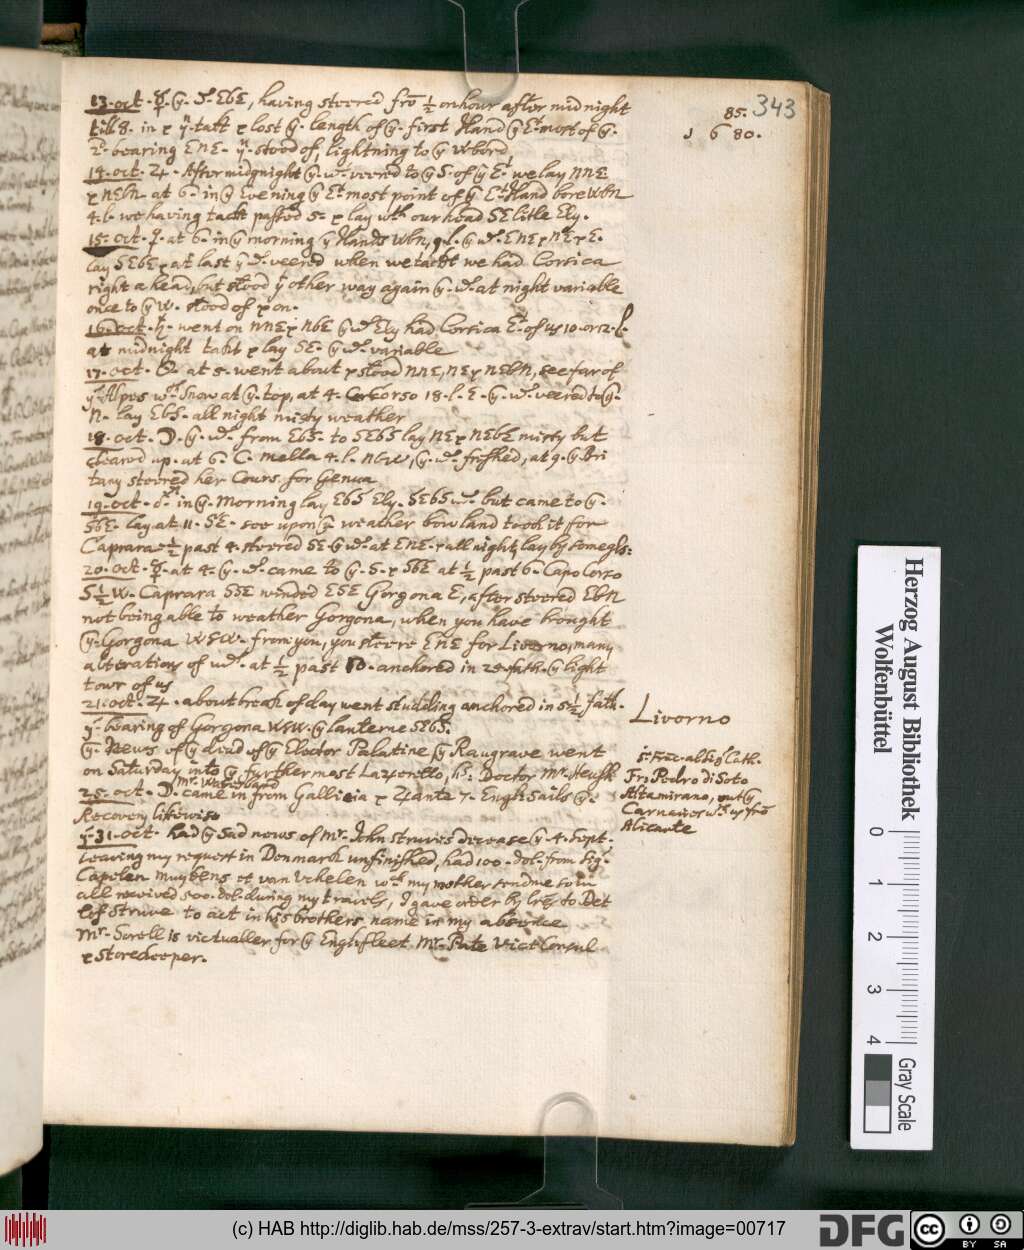 85. 343
1680.
13. oct. ☿. ÿ. wd. EbE, having steered frō ½ on hour after midnight
till 8. in & ÿ. takt & lost ÿ. length of ÿ. first Iland ÿ Et most of ÿ.
2d. bearing ENE. ÿ. stood of, lightning to ÿ Wbord
14. oct. ♃. After midgnight ÿ. wd. veered to ÿ S. of ÿ Et. we lay NNE
& NEbN at 6. in ÿ Evening ÿ Et most point of ÿ Et Iland bore WbN
4. l. we having takt passed S. & lay wth our head SE litle Ely.
15. oct. ♀. at 6. in ÿ morning ÿ Ilands WbN, 9 l. ÿ wd. ENE & NE & E.
lay SEbE & at last ÿ wd. veered when we takt we had Corsica
right a head, but stood ÿ other way again ÿ. wd. at night variable
once to ÿ W. stood of & on.
16. oct. ♄. went on NNE & NbE ÿ wd Ely had Corsica Et. of us 10. or 12. l.
at midnight takt & lay SE. ÿ wd. variable
17. oct. ☉. at 5. went about & stood NNE, NE & NEbN, see far of
ÿ Alpes wth Snow at ÿ. top, at 4. C. Corso 18. l. E. ÿ. wd. veered to ÿ.
N. lay EbS. all night misty weather
18. oct. ☽. ÿ. wd. from EbS. to SEbS lay NE & NEbE misty but
cleared up. at 6. C. mella 4. l. NbW, ÿ. wd. frished, at 9. ÿ Bri
tany steered her Cours for Genua
19. oct. ♂. in ÿ. Morning lay EbS Ely. SEbS wd. but came to ÿ.
SbE. lay at 11. SE. soe upon ÿ weather bow land took it for
Caprara ½ past 4. steered SE ÿ wd. at ENE & all night lay by some gls:
20. oct. ☿. at 4. ÿ. wd. came to ÿ. S. & SbE at ½ past 6. Capo Corso
S ½ W. Caprara SSE winded ESE Gorgona E, after steered EbN
not being able to weather Gorgona, when you have brought
ÿ. Gorgona WSW. from you, you steere ENE for Livorno, many
alterations of wd. at ½ past 10. anchored in 25. fath. ÿ light
towr of us
21. oct. ♃. about break of day went studding anchored in 5½ fath.
ÿ. bearing of Gorgona WSW. ÿ lanterne SEbS.
Livorno
ÿ. News of ÿ dead of ÿ Elector Palatine ÿ Raugrave went
on Saturday into ÿ furthermost Lazeretto, hs: Doctor Mr. Heusk
Mr. Waterhand
25. oct. ☽. came in from Gallicia & Zante 7. Engls Sails ÿ.
Recovery likewise
Sr. Franc. al Sigr Cath.
Fr. Pedro di Soto
Altamirano, out ÿ
Canaries wt. up frō
Alicante
ÿ. 31. oct. had ÿ Sad news of Mr. John Struves decease ÿ. 4. Sept.
leaving my request in Denmarck unfinished, had 100. dol. from Sigr.
Capelen Muykens et van Uchelen wch my mother send me so in
all recived 500. dol. during my travels, I gave order by lre to Det
lef Struve to act in his brothers name in my absence
Mr. Sorell is victualler for ÿ Engls fleet. Mr. Pate Vict Consul
& Storekeeper.
Herzog August Bibliothek
Wolfenbüttel
0 1 2 3 4
Gray Scale
(c) HAB http://diglib.hab.de/mss/257-3-extrav/start.htm?image=00717
DFG
cc BY SA